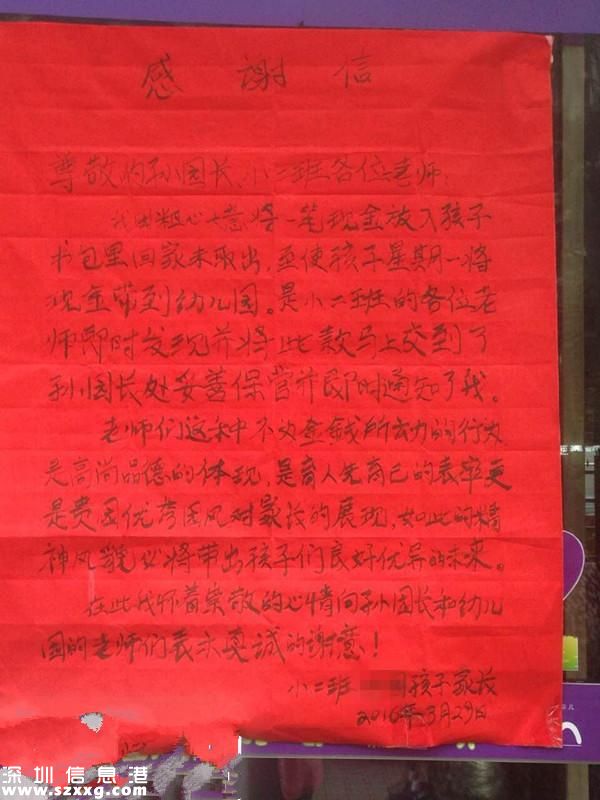 感谢信
尊敬的孙园长、小二班各位老师:
我因粗心大意将一笔现金放入孩子
书包里回家未取出,至使孩子星期一将
现金带到幼儿园。是小二班的各位老
师即时发现并将此款马上交到了
孙园长处妥善保管并即时通知了我。
老师们这种不为金钱所动的行为
是高尚品德的体现,是育人先育己的表率更
是贵园优秀园风对家长的展现,如此的精
神风貌必将带出孩子们良好优异的未来。
在此我怀着崇敬的心情向孙园长和幼儿
园的老师们表示真诚的谢意!
小二班 孩子家长
2016年3月29日
深圳信息港
www.szxxg.com